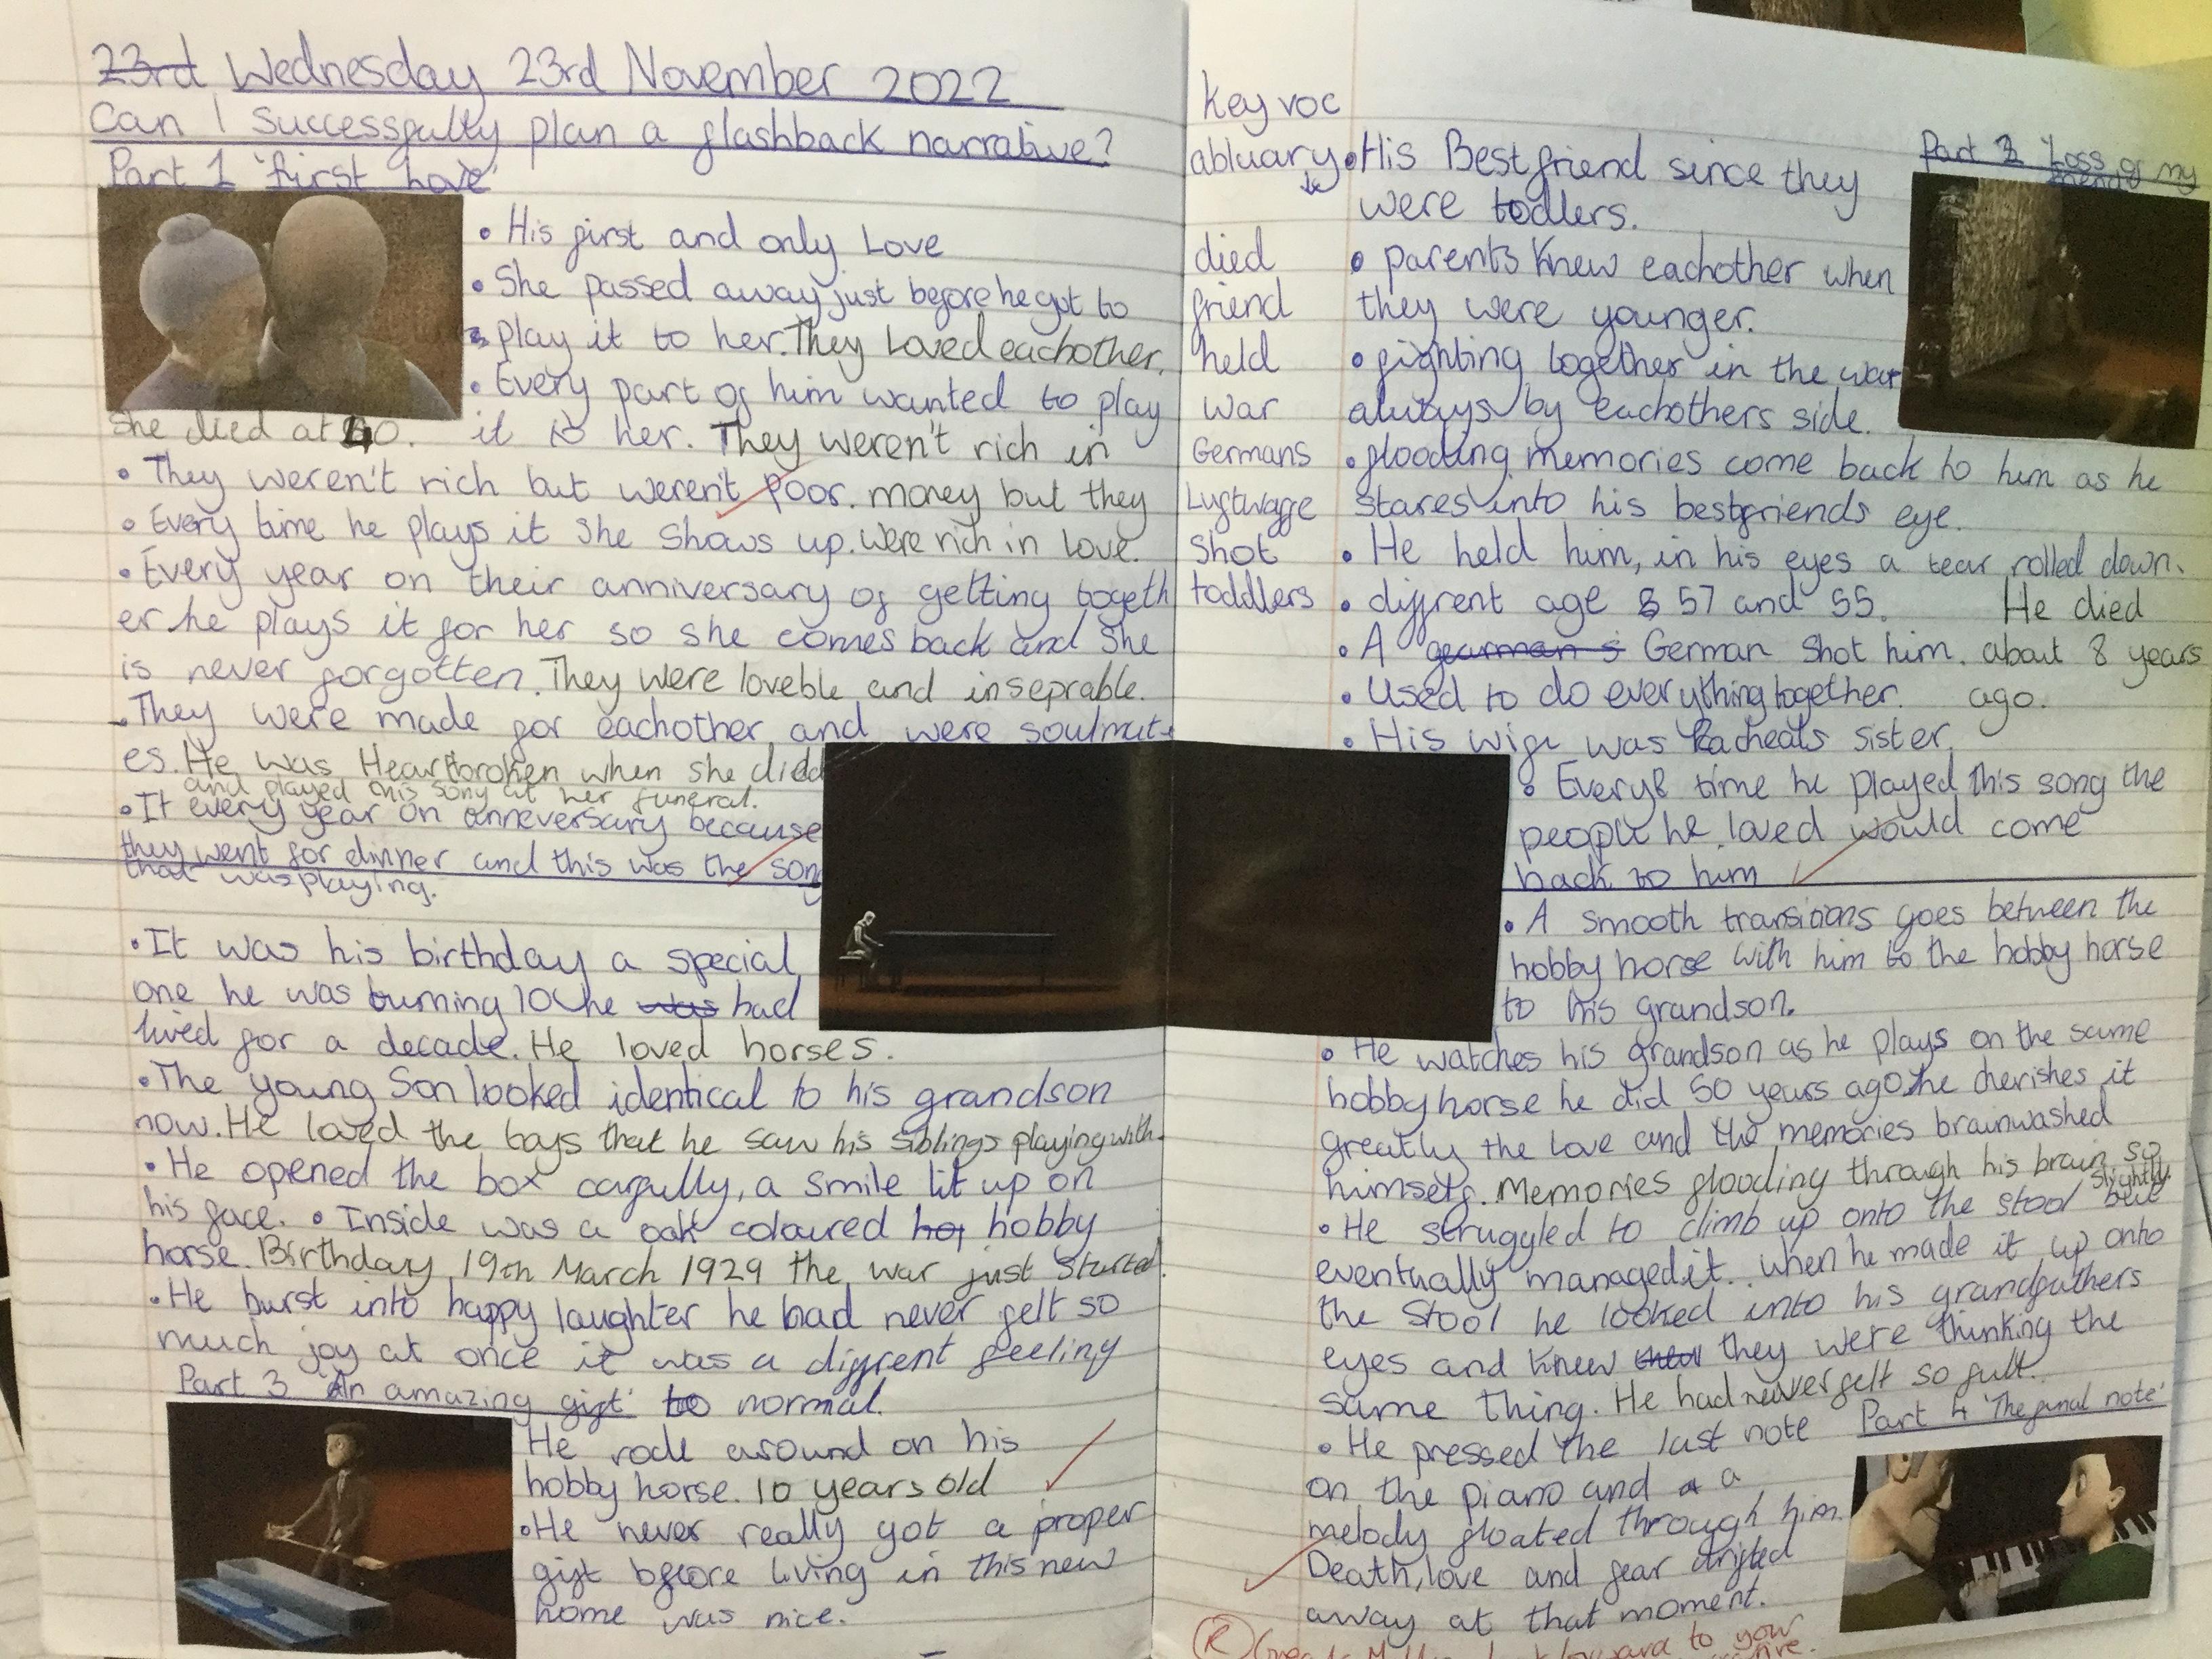 23rd Wednesday 23rd November 2022
Can I Successfully plan a flashback narrative?
Part 1 'first Love'
• His first and only Love
• She passed away just before he got to
play it to her. They Loved eachother.
• Every part of him wanted to play
She died at 40. it to her. They weren't rich in
• They weren't rich but weren't poor. money but they
• Every time he plays it She Shows up. were rich in love.
• Every year on their anniversary of getting togeth
er he plays it for her so she comes back and She
is never forgotten. They were loveble and inseprable.
They were made for eachother and were soulmat
es. He was Heartbroken when she died
and played this song at her funeral.
• It every year on anneversary because
they went for dinner and this was the song
that was playing.
• It was his birthday a special
one he was turning 10 he was had
lived for a decade. He loved horses.
• The young Son looked identical to his grandson
now. He loved the toys that he saw his siblings playing with.
• He opened the box carfully, a smile lit up on
his face. • Inside was a oak coloured hobby
horse. Birthday 19th March 1929 the war just started.
• He burst into happy laughter he had never felt so
much joy at once it was a diffrent feeling
Part 3 'An amazing gift' to normal.
He rode around on his
hobby horse. 10 years old
• He never really got a proper
gift before living in this new
home was nice.
Key voc
abluary
died
friend
held
war
Germans
Luftwaffe
shot
toddlers
Part 2 'Loss of my
friend'
• His Best friend since they
were todlers.
• parents knew eachother when
they were younger.
• fighting together in the war
always by eachothers side.
• flooding memories come back to him as he
stares into his bestfriends eye.
• He held him, in his eyes a tear rolled down.
• diffrent age 57 and 55. He died
• A gearman s German Shot him. about 8 years
• Used to do everything together. ago.
• His wife was Racheals sister.
• Every time he played this song the
people he loved would come
back to him
• A smooth transitions goes between the
hobby horse with him to the hobby horse
to his grandson.
• He watches his grandson as he plays on the same
hobby horse he did 50 years ago, he cherishes it
greatly the love and the memories brainwashed
himself. Memories flooding through his brain so
slightly.
• He struggled to climb up onto the stool but
eventually managed it. when he made it up onto
the Stool he looked into his grandfathers
eyes and knew they were thinking the
same thing. He had never felt so full.
Part 4 'The final note'
• He pressed the last note
on the piano and a
melody floated through him.
Death, love and fear drifted
away at that moment.
R
forward to your